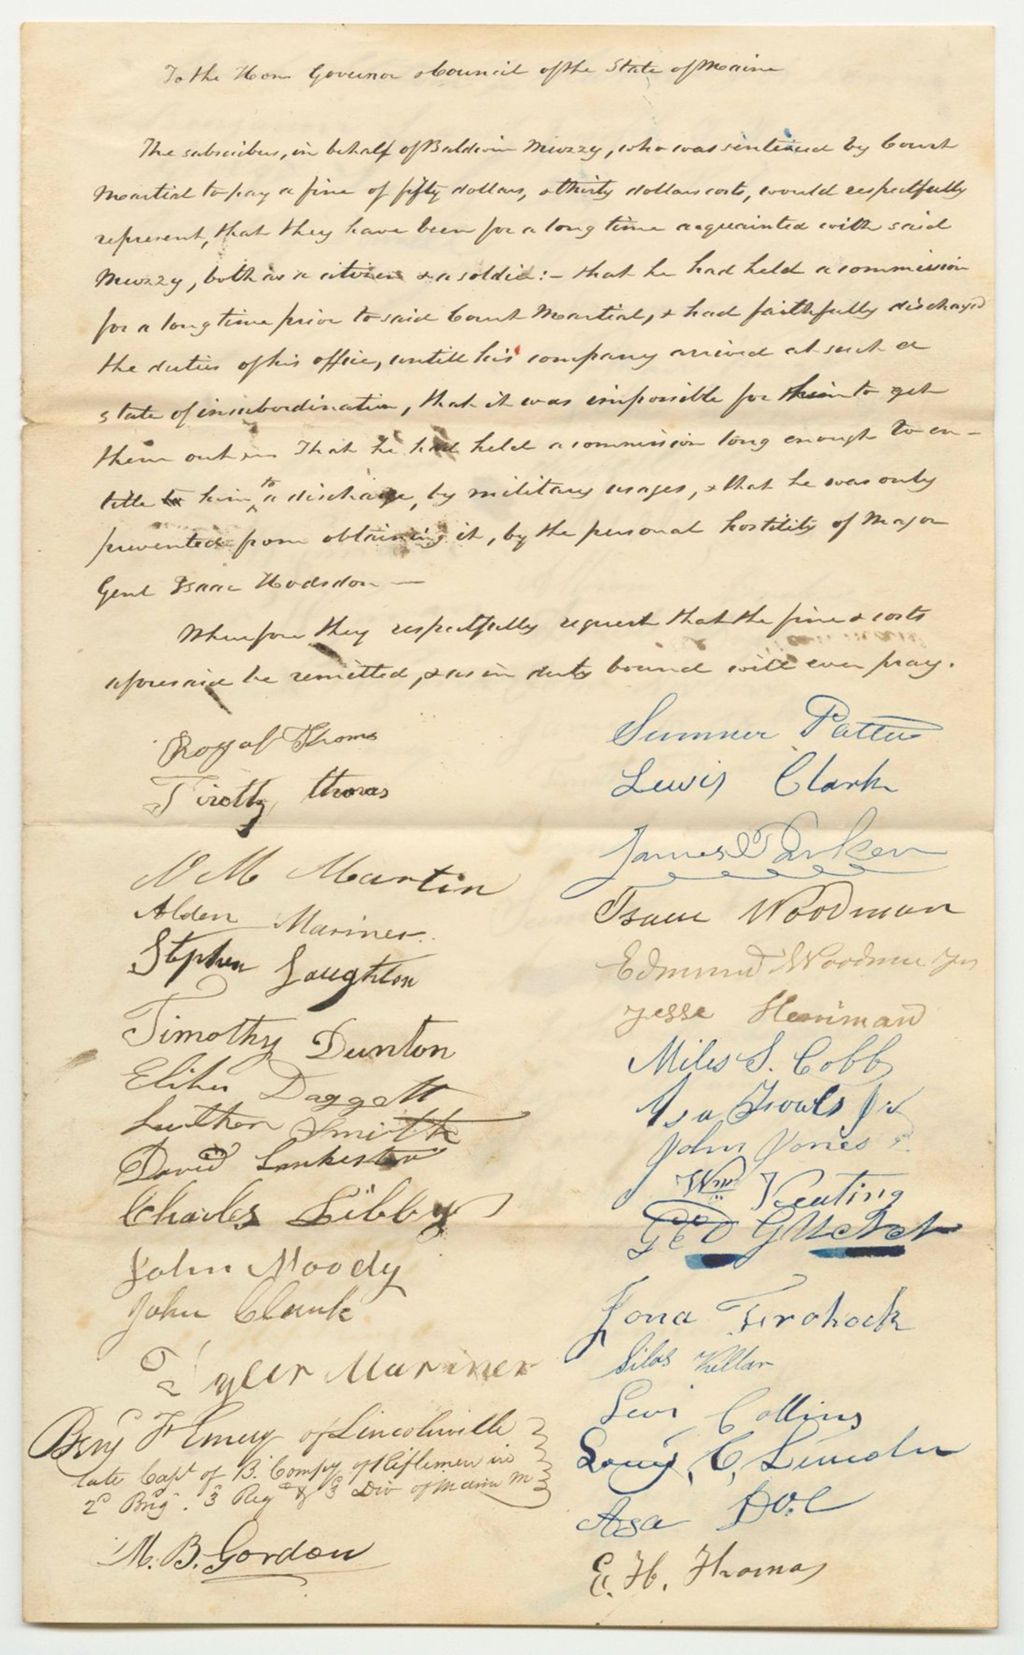 To the Hon Governor & Council of the State of Maine
The subscribers, in behalf of Baldwin Muzzy, who was sentenced by Court
Martial to pay a fine of fifty dollars, & thirty dollars costs, would respectfully
represent, that they have been for a long time acquainted with said
Muzzy, both as a citizen & a soldier:- that he had held a commission
for a long time prior to said Court Martial, & had faithfully discharged
the duties of his office, untill his company arrived at such a
state of insubordination, that it was impossible for him to get
them out That he had held a commission long enough to en-
title him to a discharge, by military usages, & that he was only
prevented from obtaining it, by the personal hostility of Major
Genl Isaac Hodsdon —
Wherefore they respectfully request that the fine & costs
aforesaid be remitted, & as in duty bound will ever pray.
Royal Thomas
Thomas
N M Martin
Alden Mariner
Stephen Laughton
Timothy Dunton
Elihu Daggett
Luther Smith
David
Charles Libby
John Moody
John Clark
Tyler Mariner
Benj F Emery of Lincolnville
late Capt of B. Compy of Riflemen in
2d Brig. 3 Reg & 3 Div of Maine M
M. B. Gordon
Sumner Patten
Lewis Clark
James Parker
Isaac Woodman
Edmund Woodman Jr
Jesse Herriman
Miles S. Cobb
Asa Jr
John Jones
Wm Keating
Geo
Jona
Silas Kellar
Levi Collins
C. Lincoln
Asa Doe
E. H. Thomas